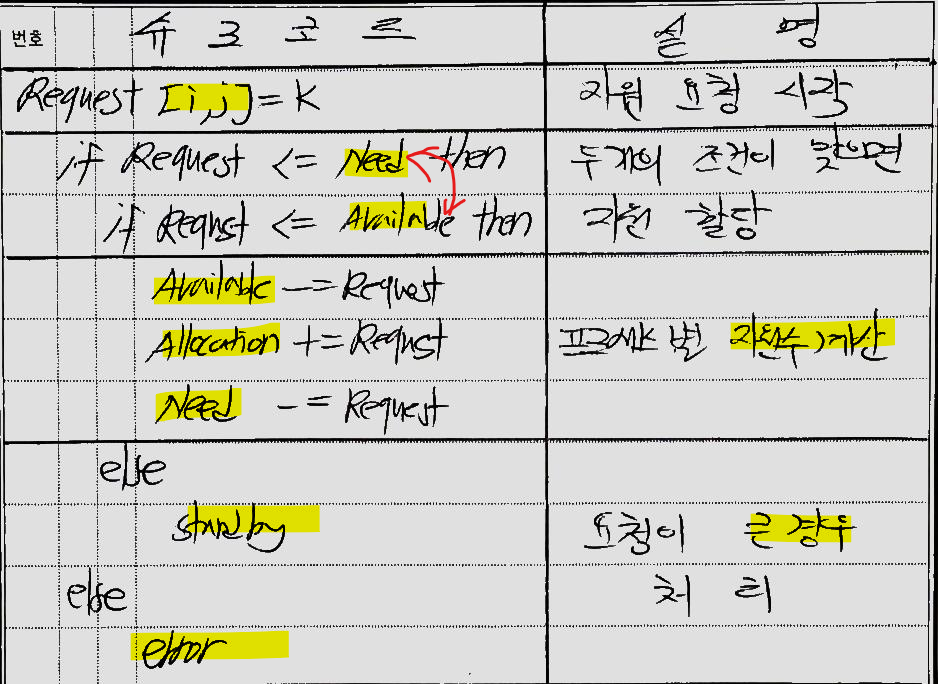 번호 슈 크 코 드 설 명
Request [i,j] = K 자원 요청 시각
if Request <= Need then 두개의 조건이 맞으면
if Requst <= Available then 자원 할당
Available -= Request
Allocation += Requst 프로세스 별 자원수 계산
Need -= Request
else
standby 요청이 큰 경우
else 처 리
error